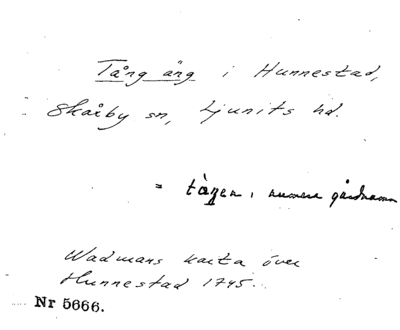 Tång äng i Hunnestad,
Skårby sn, Ljunits hd.
= tågen, numera gårdnamn
Wadmans karta över
Hunnestad 1745.
Nr 5666.